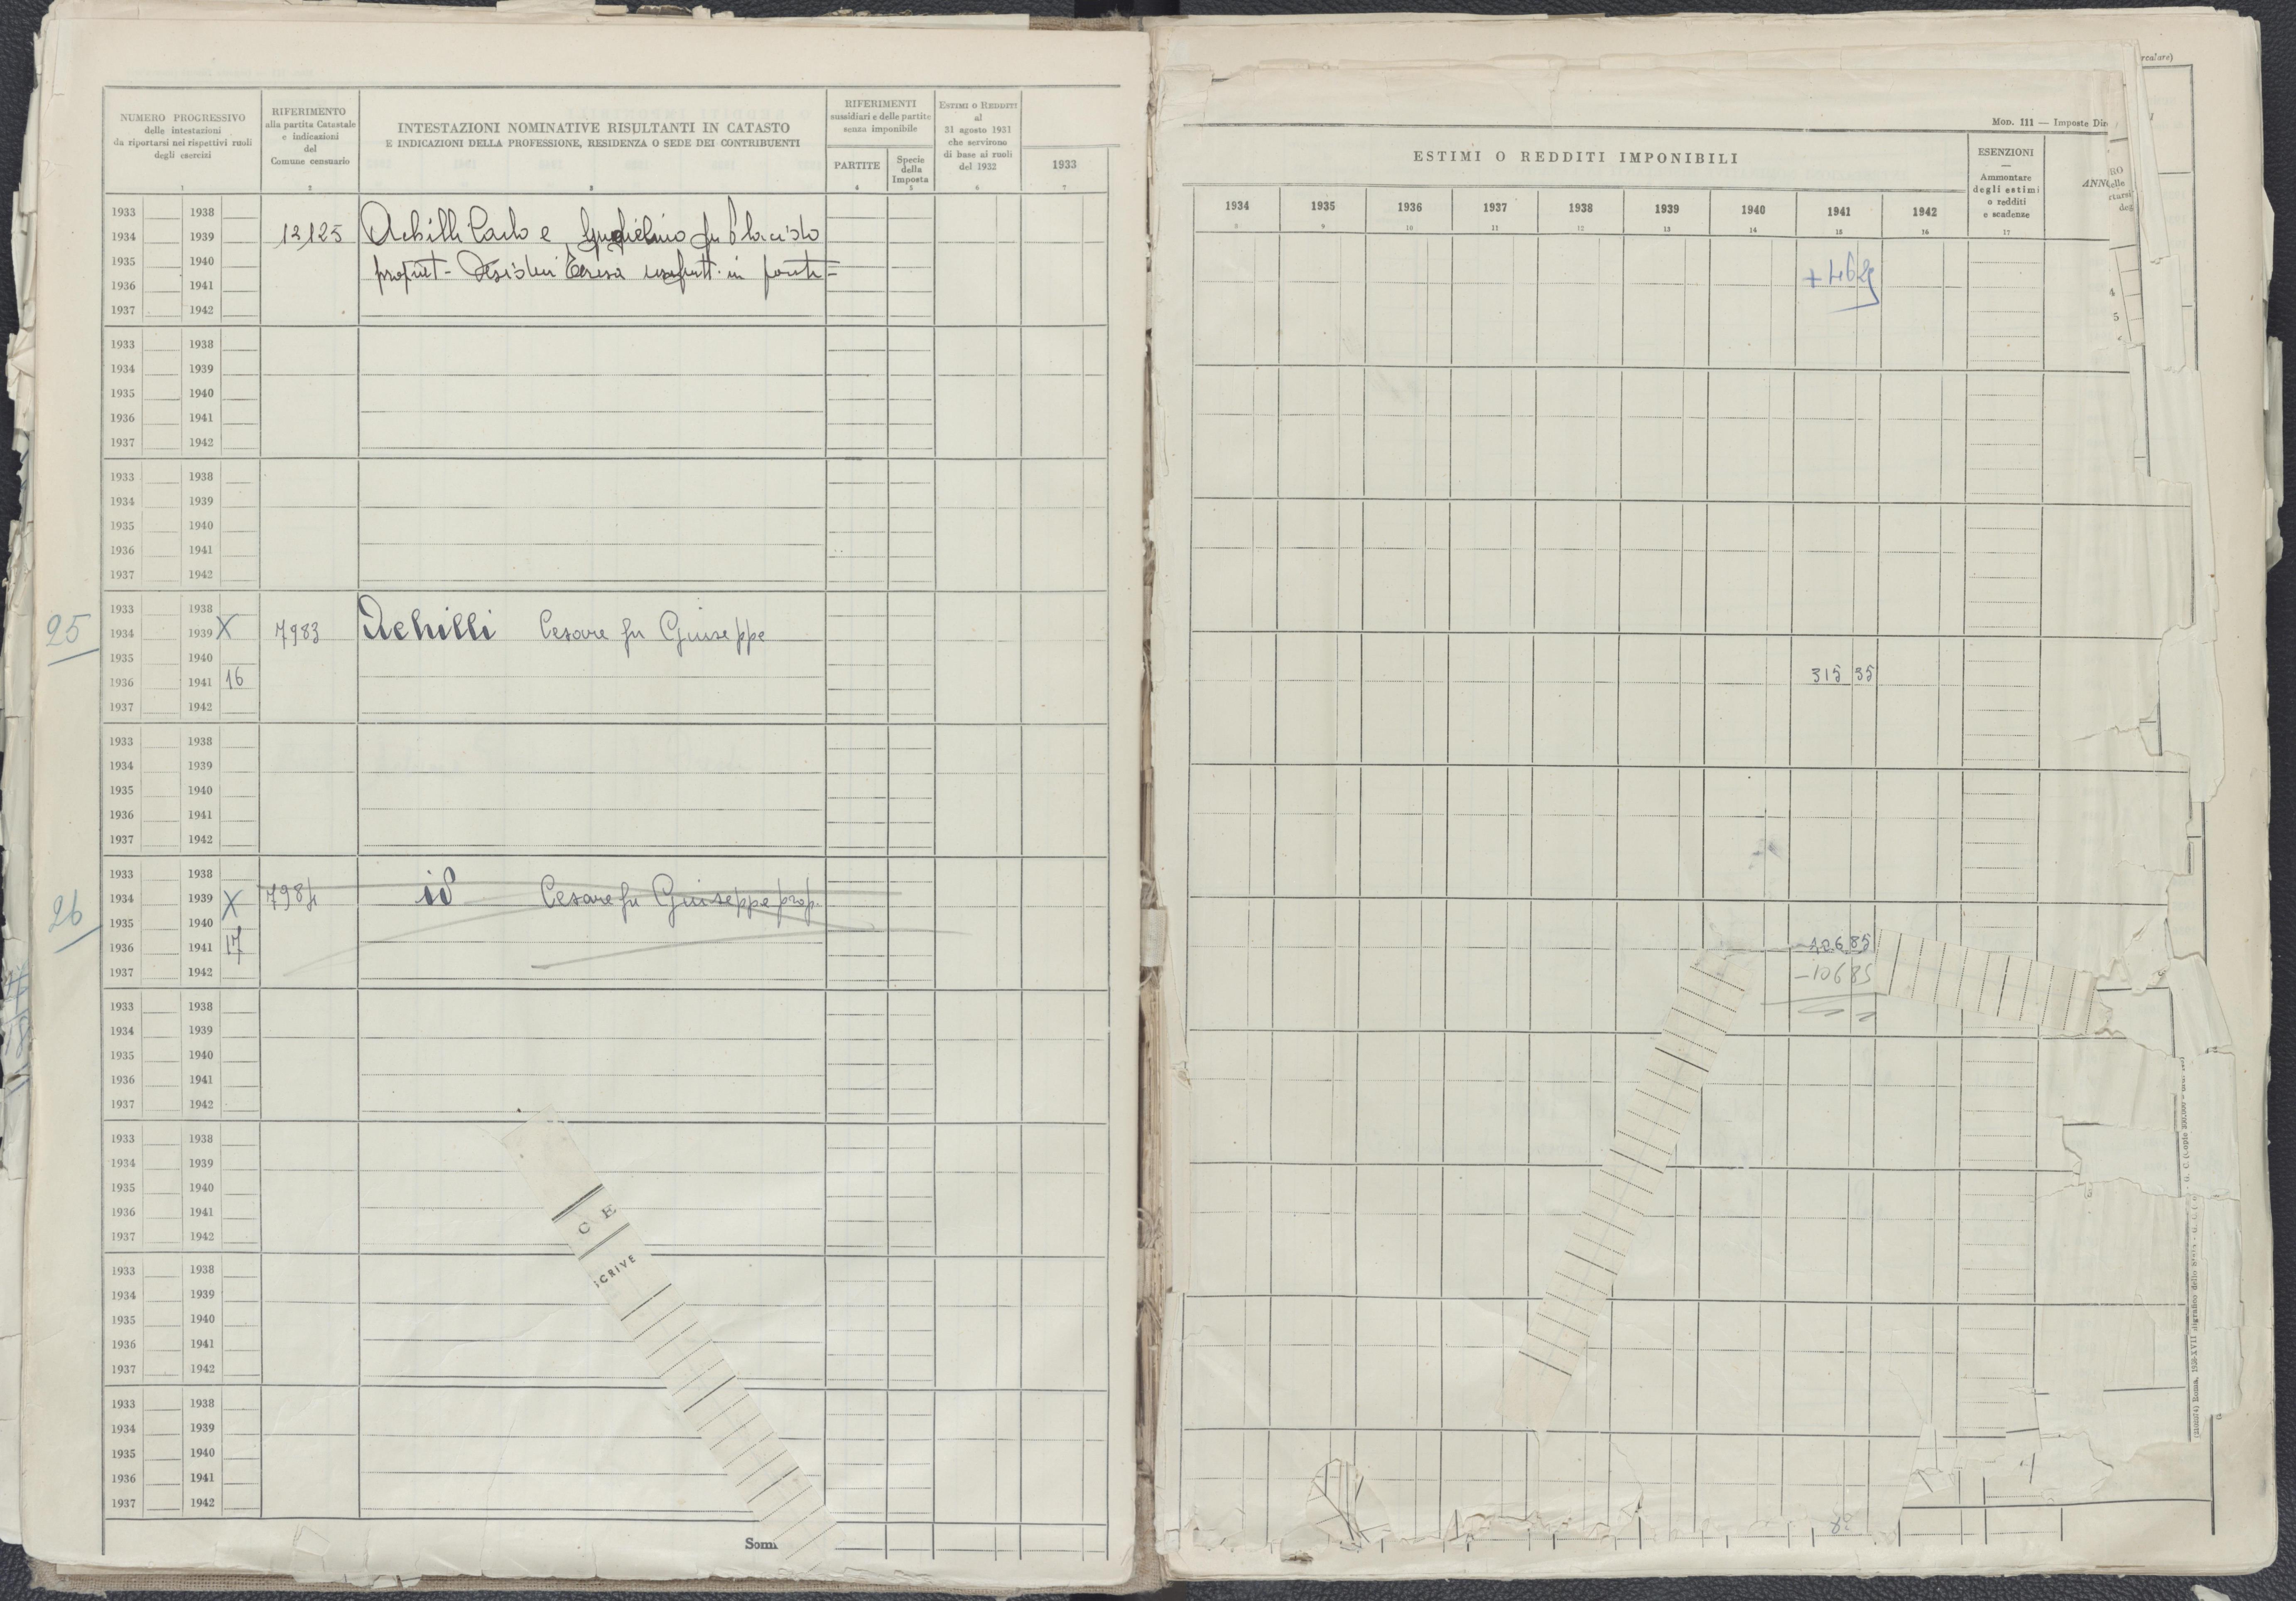 NUMERO PROGRESSIVO
delle intestazioni
da riportarsi nei rispettivi ruoli
degli esercizi
1
RIFERIMENTO
alla partita Catastale
e indicazioni
del
Comune censuario
2
INTESTAZIONI NOMINATIVE RISULTANTI IN CATASTO
E INDICAZIONI DELLA PROFESSIONE, RESIDENZA O SEDE DEI CONTRIBUENTI
3
RIFERIMENTI
sussidiari e delle partite
senza imponibile
PARTITE
4
Specie
della
Imposta
5
ESTIMI O REDDITI
al
31 agosto 1931
che servirono
di base ai ruoli
del 1932
6
1933
7
1933 1938
1934 1939 12125 Achilli Carlo e Guglielmo fu Placido
1935 1940 propriet - Desideri Teresa usufrutt. in parte =
1936 1941
1937 1942
1933 1938
1934 1939
1935 1940
1936 1941
1937 1942
1933 1938
1934 1939
1935 1940
1936 1941
1937 1942
25
1933 1938
1934 1939 X 7983 Achilli Cesare fu Giuseppe
1935 1940
1936 1941 16
1937 1942
1933 1938
1934 1939
1935 1940
1936 1941
1937 1942
26
1933 1938
1934 1939 X 7984 id Cesare fu Giuseppe prop.
1935 1940
1936 1941 17
1937 1942
1933 1938
1934 1939
1935 1940
1936 1941
1937 1942
1933 1938
1934 1939
1935 1940
1936 1941
1937 1942
C E
SCRIVE
1933 1938
1934 1939
1935 1940
1936 1941
1937 1942
1933 1938
1934 1939
1935 1940
1936 1941
1937 1942
Som
rcolare)
Mon. III — Imposte Dir
ESTIMI O REDDITI IMPONIBILI
1934 1935 1936 1937 1938 1939 1940 1941 1942
8 9 10 11 12 13 14 15 16
ESENZIONI
Ammontare
degli estimi
o redditi
e scadenze
17
ANN
RO
elle
rtarsi
deg
4
5
315 95
-106 85